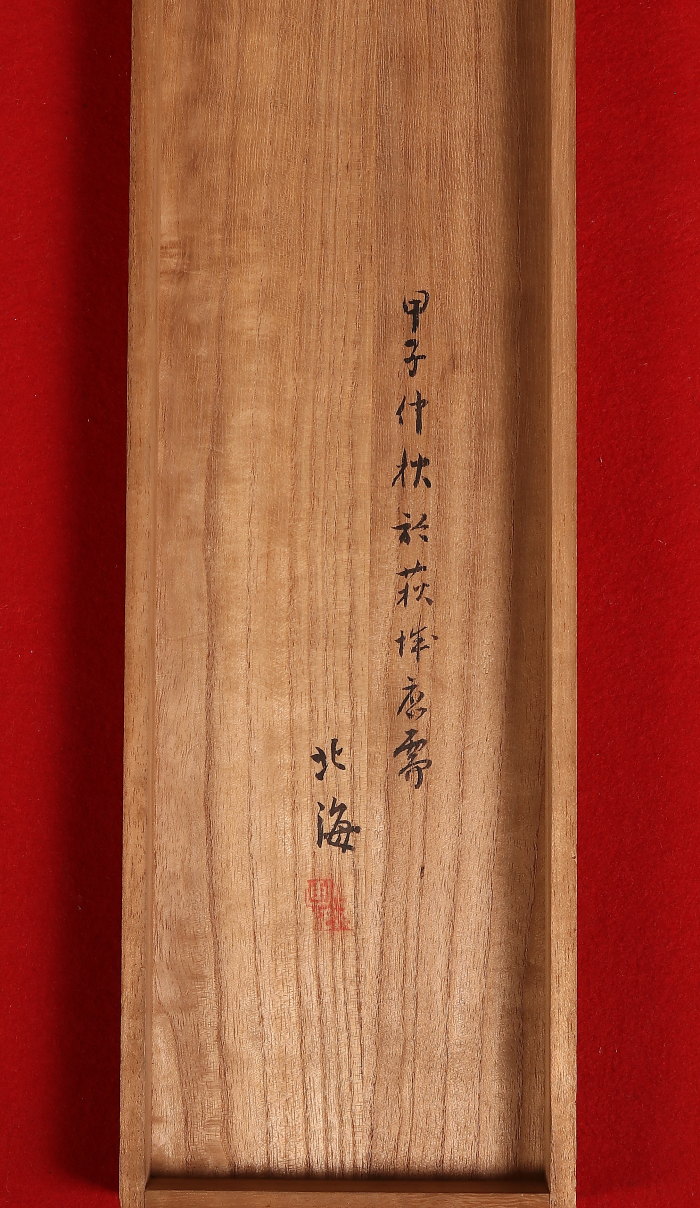 甲子仲秋於萩城応需
北海